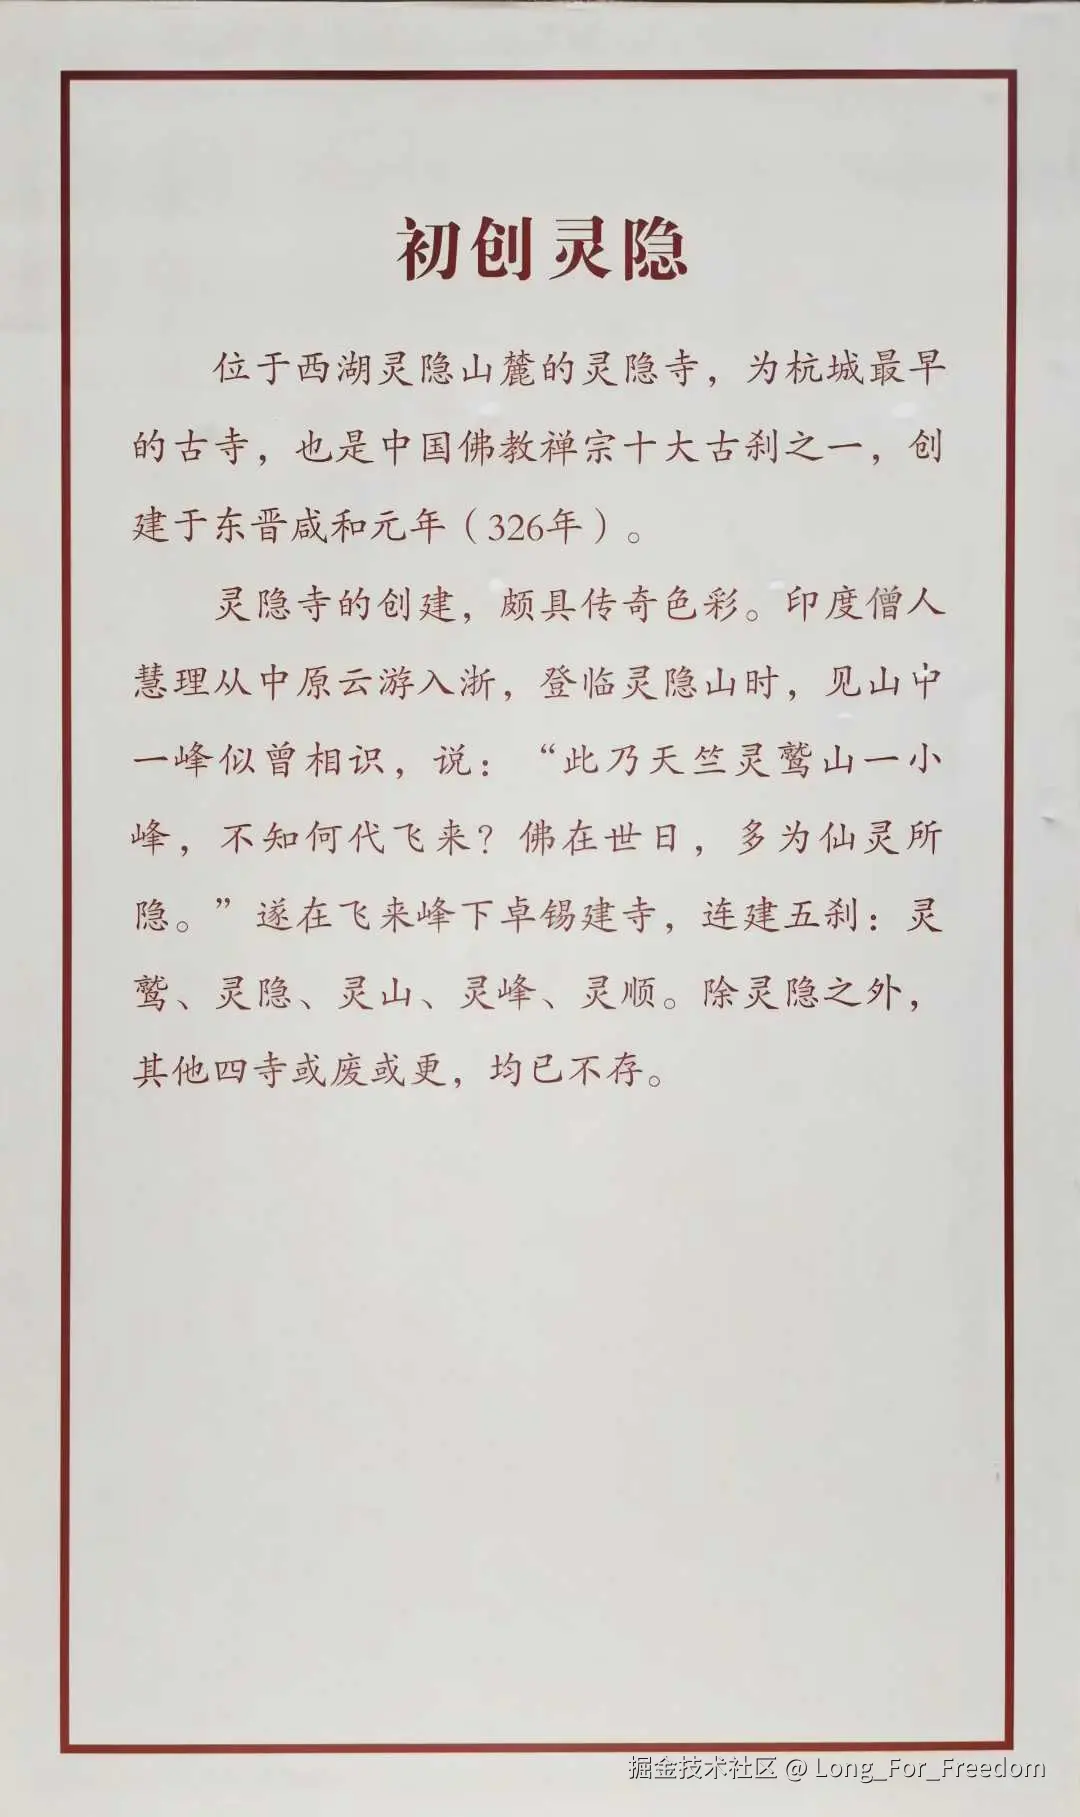 初创灵隐
位于西湖灵隐山麓的灵隐寺，为杭城最早
的古寺，也是中国佛教禅宗十大古刹之一，创
建于东晋咸和元年（326年）。
灵隐寺的创建，颇具传奇色彩。印度僧人
慧理从中原云游入浙，登临灵隐山时，见山中
一峰似曾相识，说：“此乃天竺灵鹫山一小
峰，不知何代飞来？佛在世日，多为仙灵所
隐。”遂在飞来峰下卓锡建寺，连建五刹：灵
鹫、灵隐、灵山、灵峰、灵顺。除灵隐之外，
其他四寺或废或更，均已不存。
掘金技术社区 @ Long_For_Freedom